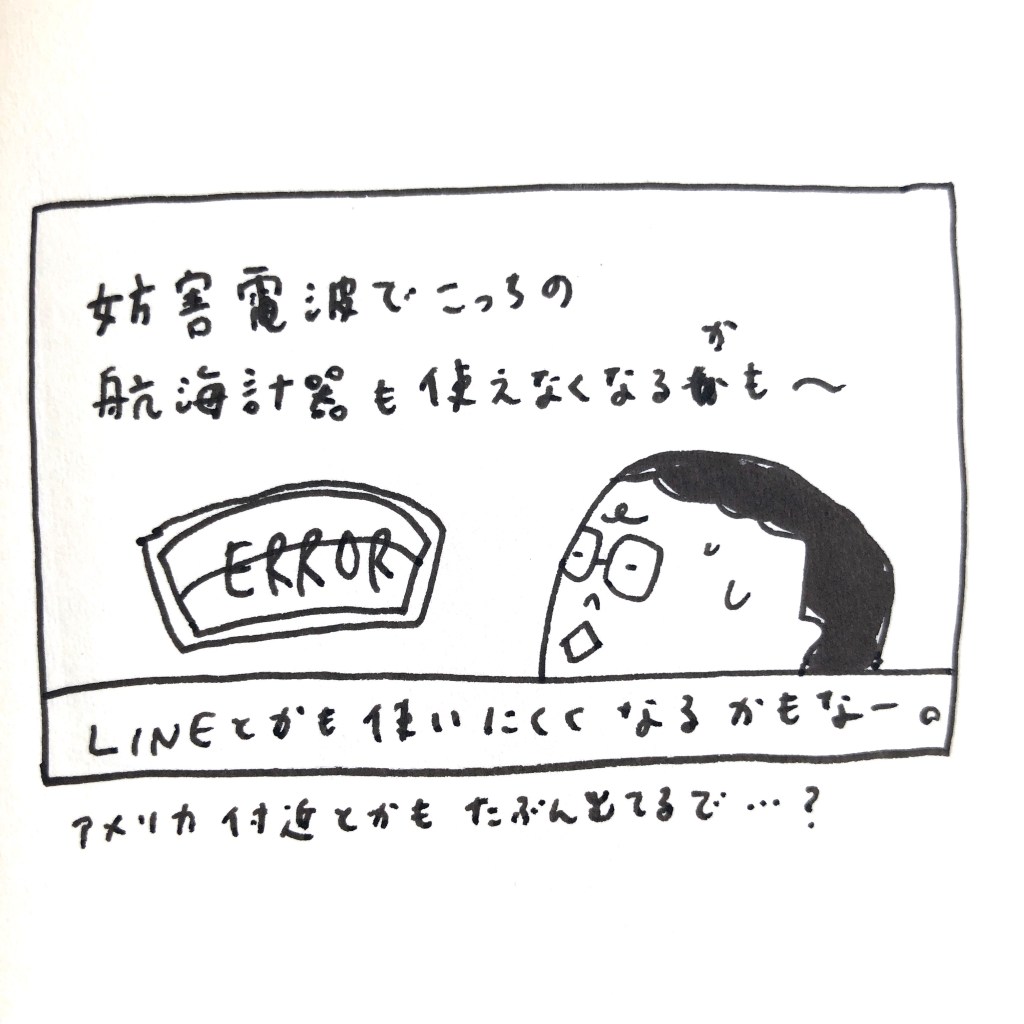 妨害電波でこっちの
航海計器も使えなくなるかも〜
ERROR
LINEとかも使いにくくなるかもなー。
アメリカ付近とかもたぶん出てるで…?